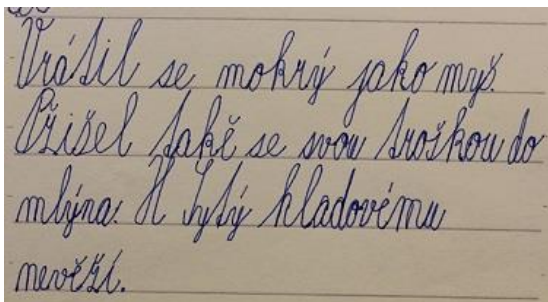 Vrátil se mokrý jako myš.
Přišel také se svou troškou do
mlýna. A sytý hladovému
nevěří.